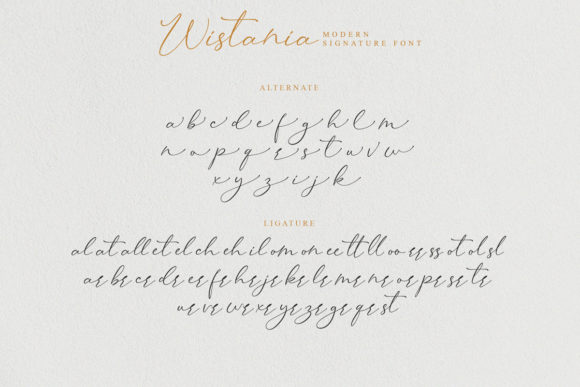 Wistania MODERN
SIGNATURE FONT
ALTERNATE
a b c d e f g h l m
n o p q r s t u v w
x y z i j k
LIGATURE
al at all et el ch eh il om on ee tt ll oo rr ss ot ol sl
ar br cr dr er fr hr jr kr lr mr nr or pr sr tr
ur vr wr xr yr zr gr qr st